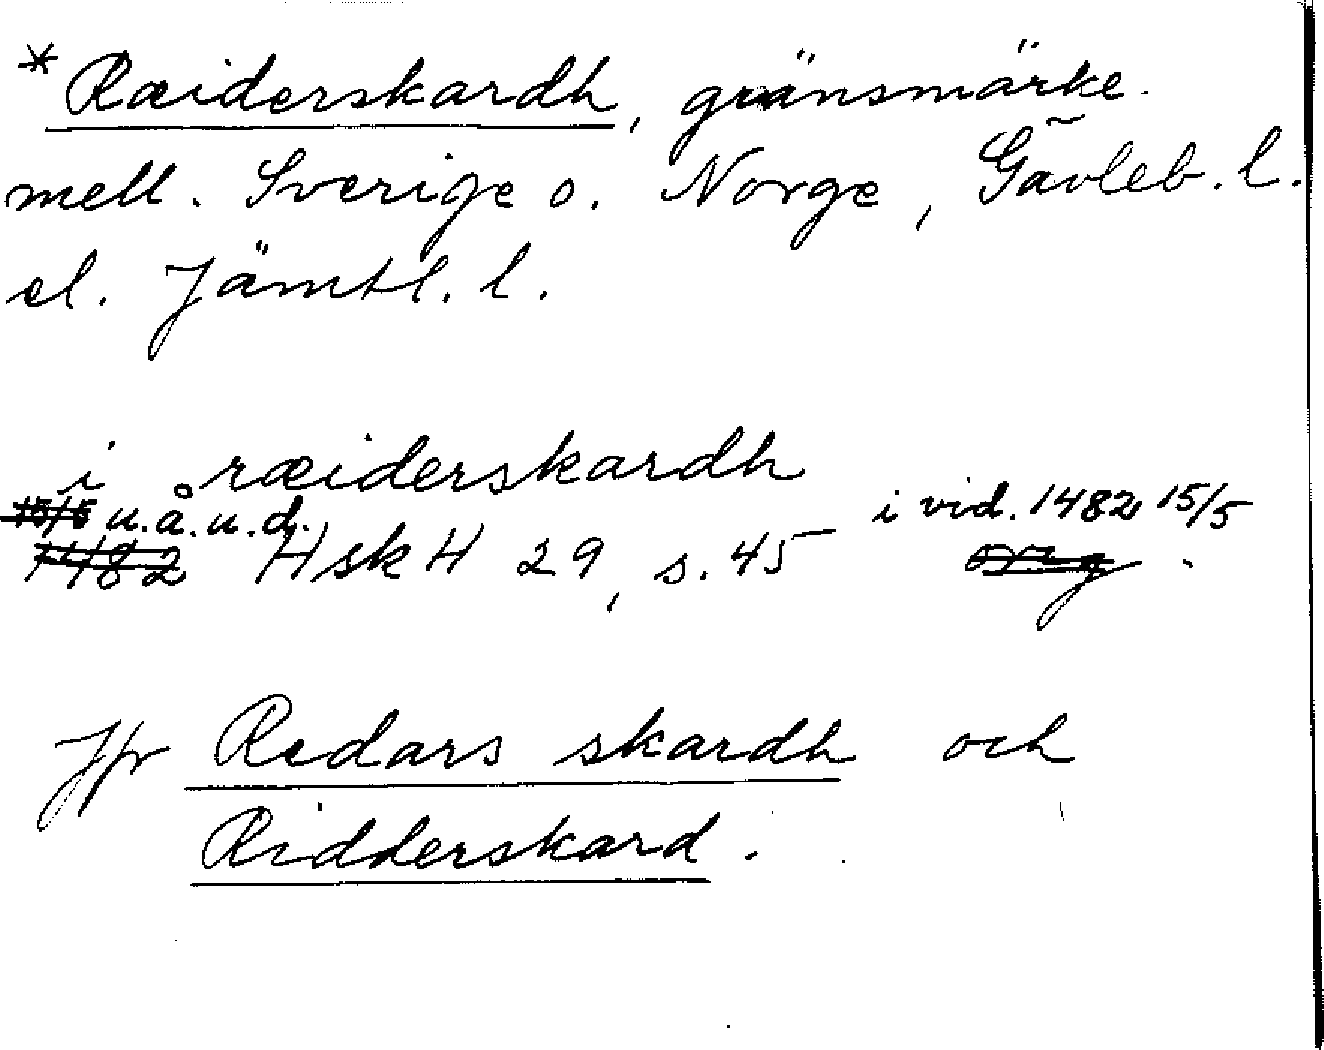 * Ræiderskardh, gränsmärke
mell. Sverige o. Norge, Gävleb. l.
el. Jämtl. l.
i ræiderskardh
15/5 u.å.u.d. i vid. 1482 15/5
1482 HskH 29, s. 45 orig.
Jfr Redars skardh och
Ridderskard.